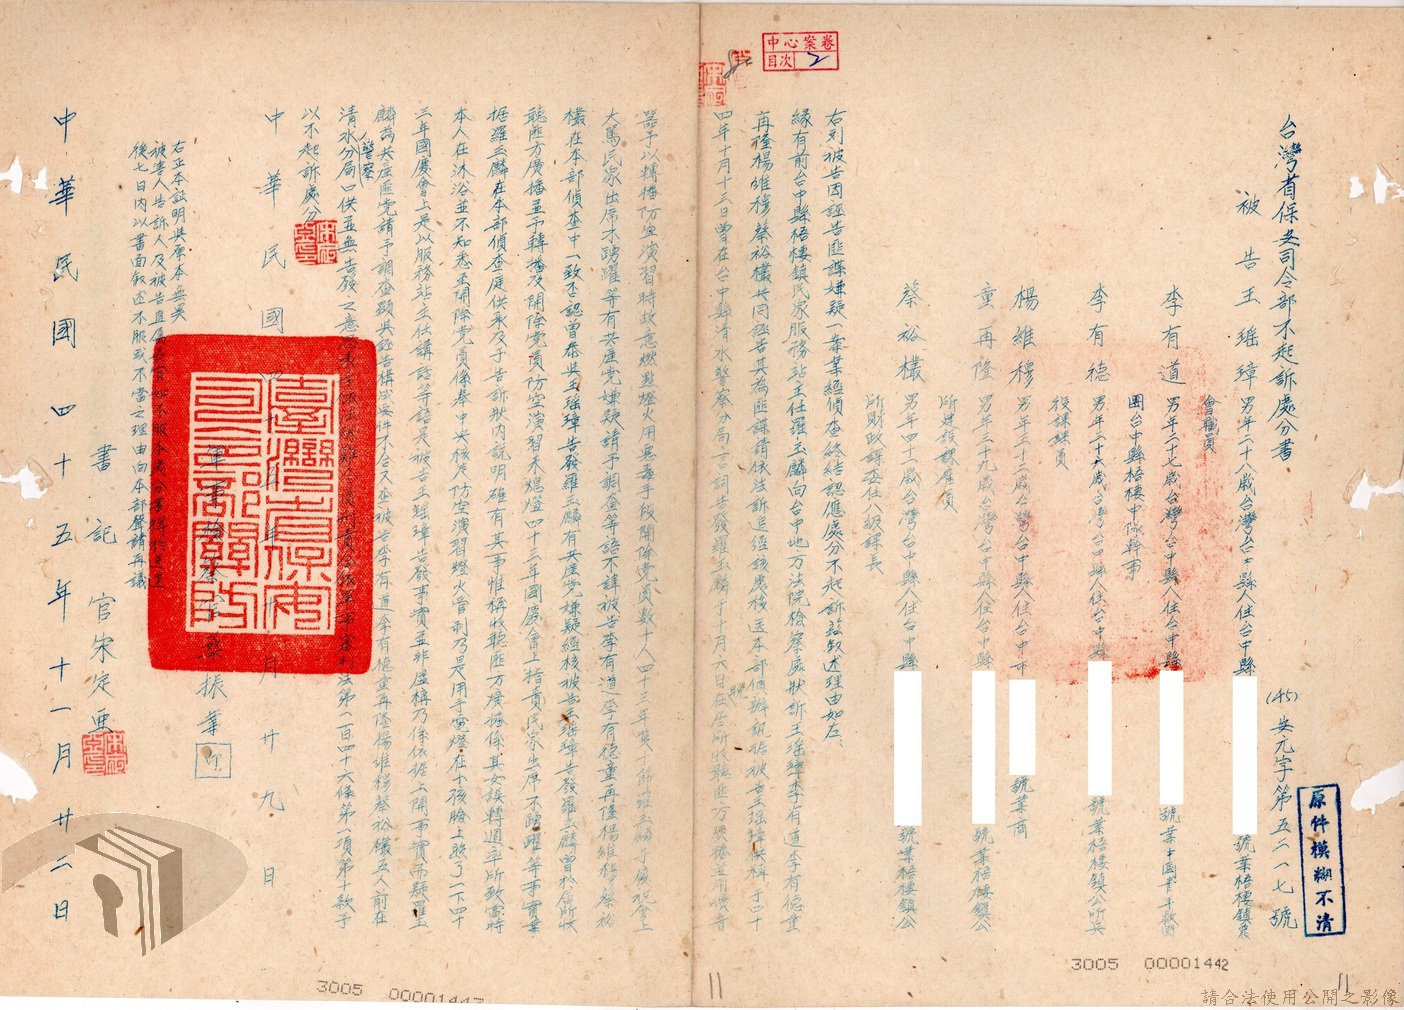 中心案卷
目次 2
原件模糊不清
台灣省保安司令部不起訴處分書
(45)安元字第五二一七號
被告王瑶璋 男年二十八歲台灣台中縣人住台中縣 號業梧棲鎮農
會職員
李有道 男年二十七歲台灣台中縣人住台中縣 號業中國青年救國
團台中縣梧棲中隊幹事
李有德 男年二十六歲台灣台中縣人住台中縣 號業梧棲鎮公所兵
役課課員
楊維穆 男年三十二歲台灣台中縣人住台中市 號業商
童再隆 男年三十九歲台灣台中縣人住台中縣 號業梧棲鎮公
所建設課雇員
蔡裕欉 男年四十一歲台灣台中縣人住台中縣 號業梧棲鎮公
所財政課委任八級課長
右列被告因誣告匪諜嫌疑一案業經偵查終結認應處分不起訴茲敘述理由如左：
緣有前台中縣梧棲鎮民衆服務站主任羅玉麟向台中地方法院檢察處狀訴王瑶璋李有道李有德童
再隆楊維穆蔡裕欉共同誣告其為匪諜請依法訴追經該處移送本部偵辦訊據被告王瑶璋供稱于四十
四年十月十三日曾在台中縣清水警察分局言詞告發羅玉麟于十月六日在居所收聽匪方廣播並用擴音
器予以轉播防空演習時故意燃點燈火用惡毒手段開除黨員數十人四十三年雙十節羅玉麟于慶祝會上
大罵民衆出席不踴躍等有共產党嫌疑請予調查等語不諱被告李有道李有德童再隆楊維穆蔡裕
欉在本部偵查中一致否認曾參與王瑶璋告發羅玉麟有共產党嫌疑經核被告王瑶璋告發羅玉麟曾於居所收
聽匪方廣播並予轉播及開除党員防空演習未熄燈四十三年國慶會上指責民衆出席不踴躍等事實業
據羅玉麟在本部偵查庭供承及于告訴狀內說明確有其事惟稱收聽匪方廣播係其女誤轉週率所致當時
本人在沐浴並不知悉至開除党員係奉中央核定防空演習燈火管制乃是用手電燈在小孩臉上照了一下四十
三年國慶會上是以服務站主任講話等語是被告王瑶璋告發事實並非虛構乃係依據上開事實而疑羅玉
麟為共產匪党請予調查顯與誣告構成要件不合又查被告李有道李有德童再隆楊維穆蔡裕欉五人前在
清水警察分局口供並無告發之意
法第一百四十六條第一項第十款予
以不起訴處分
中華民國四十五年十月廿九日
軍事檢察官蔡振業 印
右正本証明與原本無異
後七日內以書面敘述不服或不當之理由向本部聲請再議
書記官宋定亜
中華民國四十五年十一月廿二日
3005 00001442
11
11
請合法使用公開之影像